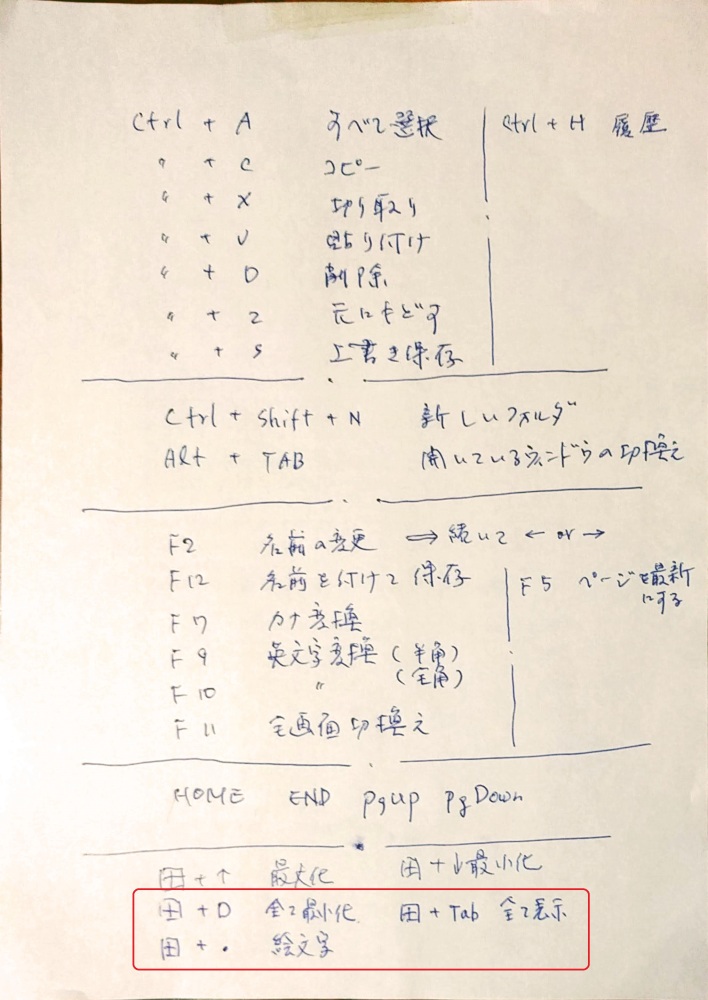 Ctrl + A すべて選択 Ctrl + H 履歴
〃 + C コピー
〃 + X 切り取り
〃 + V 貼り付け
〃 + D 削除
〃 + Z 元にもどす
〃 + S 上書き保存
Ctrl + Shift + N 新しいフォルダ
Alt + TAB 開いているウィンドウの切換え
F2 名前の変更 ⇒ 続いて ← or →
F12 名前を付けて保存 F5 ページを最新
にする
F7 カナ変換
F9 英文字変換 (半角)
F10 〃 (全角)
F11 全画面切換え
HOME END pgup pgDown
田 + ↑ 最大化 田 + ↓ 最小化
田 + D 全て最小化 田 + Tab 全て表示
田 + . 絵文字